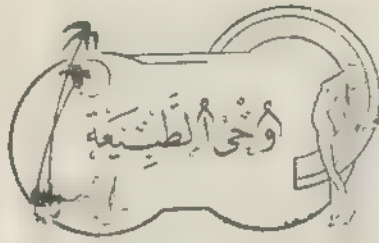 وَحْىُ ٱلطَّبِيعَةِ